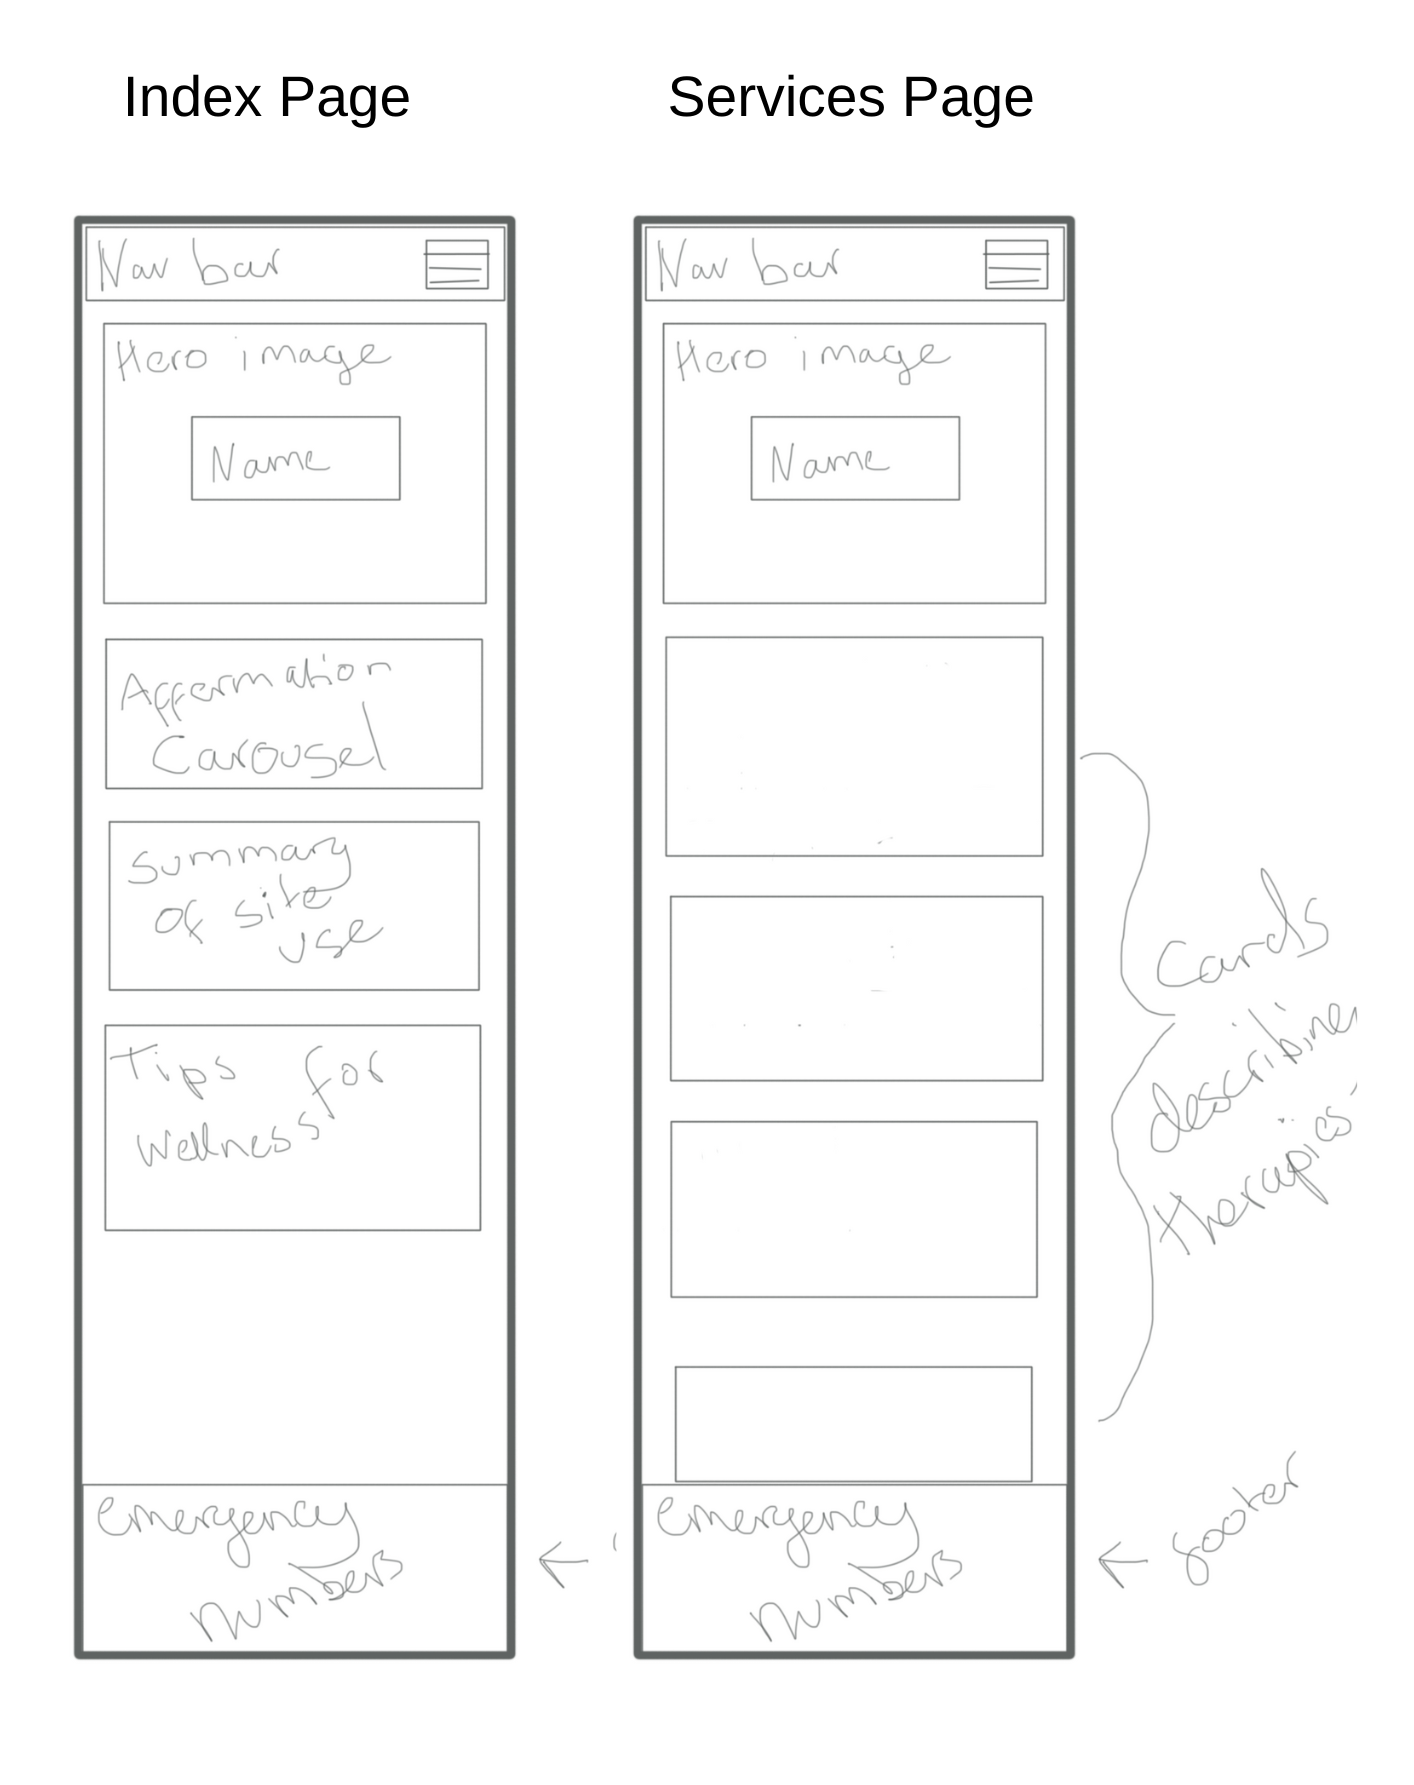 Index Page
Services Page
Nav bar
Hero image
Name
Affermation
Carousel
Summary
of site
use
Tips for
Wellness
emergency
numbers
Nav bar
Hero image
Name
Cards
describing
therapies
emergency
numbers
footer